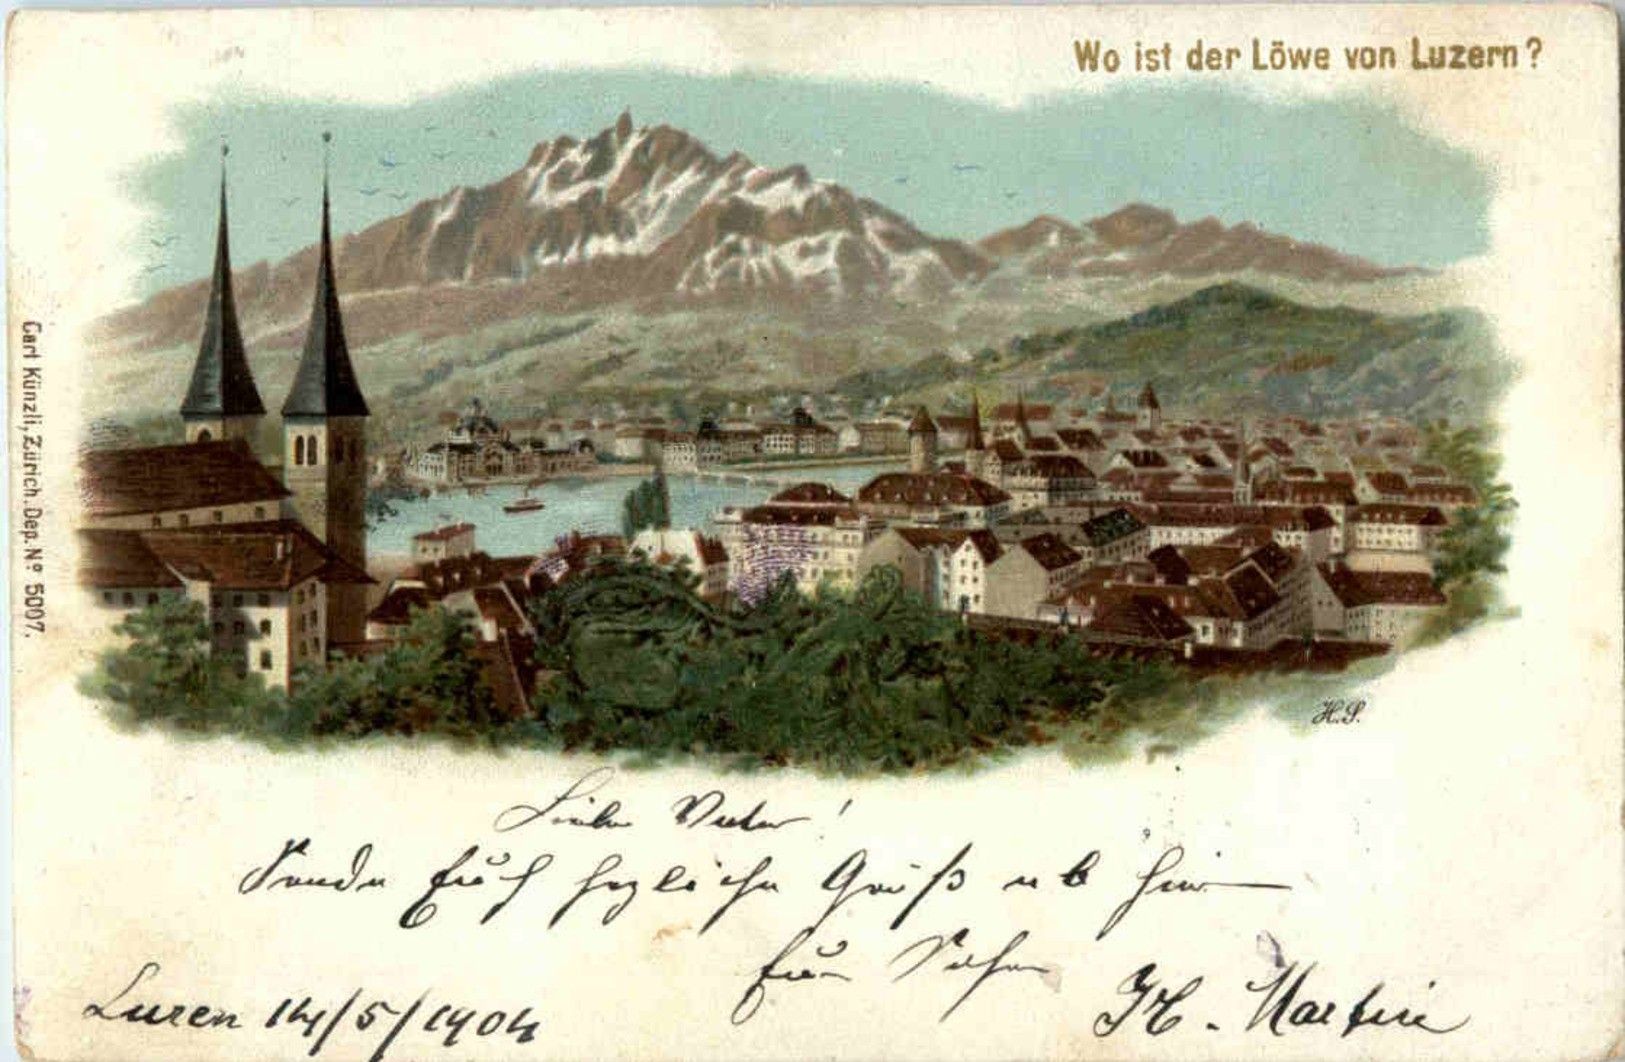 Wo ist der Löwe von Luzern?
Carl Künzli, Zürich. Dep. Nº 5007.
H.S.
Liebe Vater!
Sende Euch herzliche Grüß ab hier
Euer Sohn
Luzern 14/5/1904
H. Martin